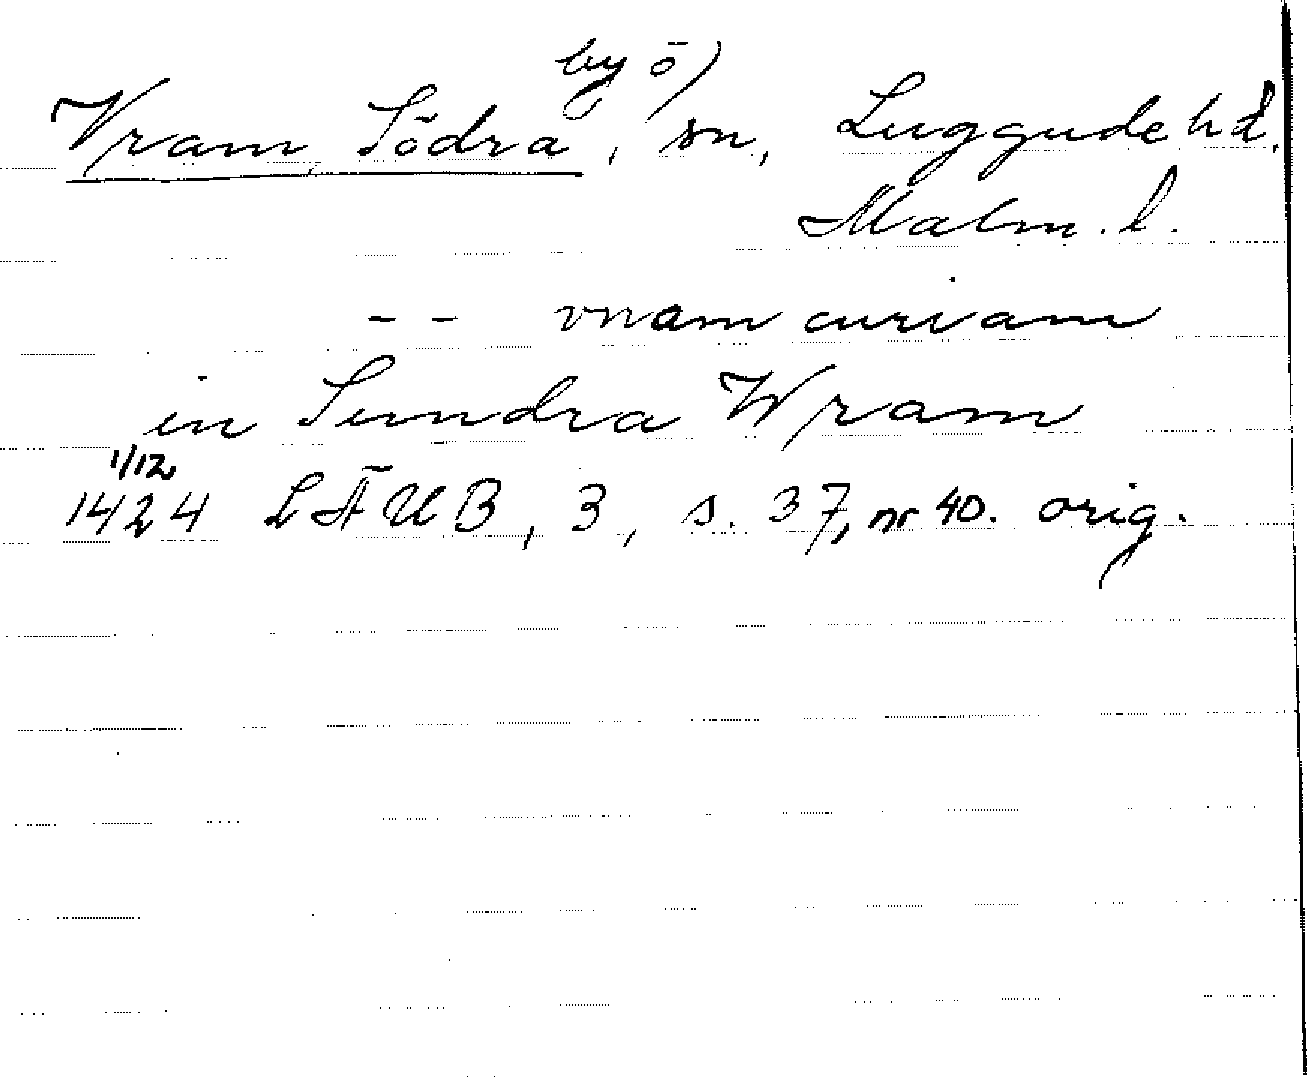 by ö)
Vram Södra, sn, Luggude hd.
Malm. l.
-- vnam curiam
in Sundra Wram
1/12
1424 LÄUB, 3, s. 37, nr 40. orig.